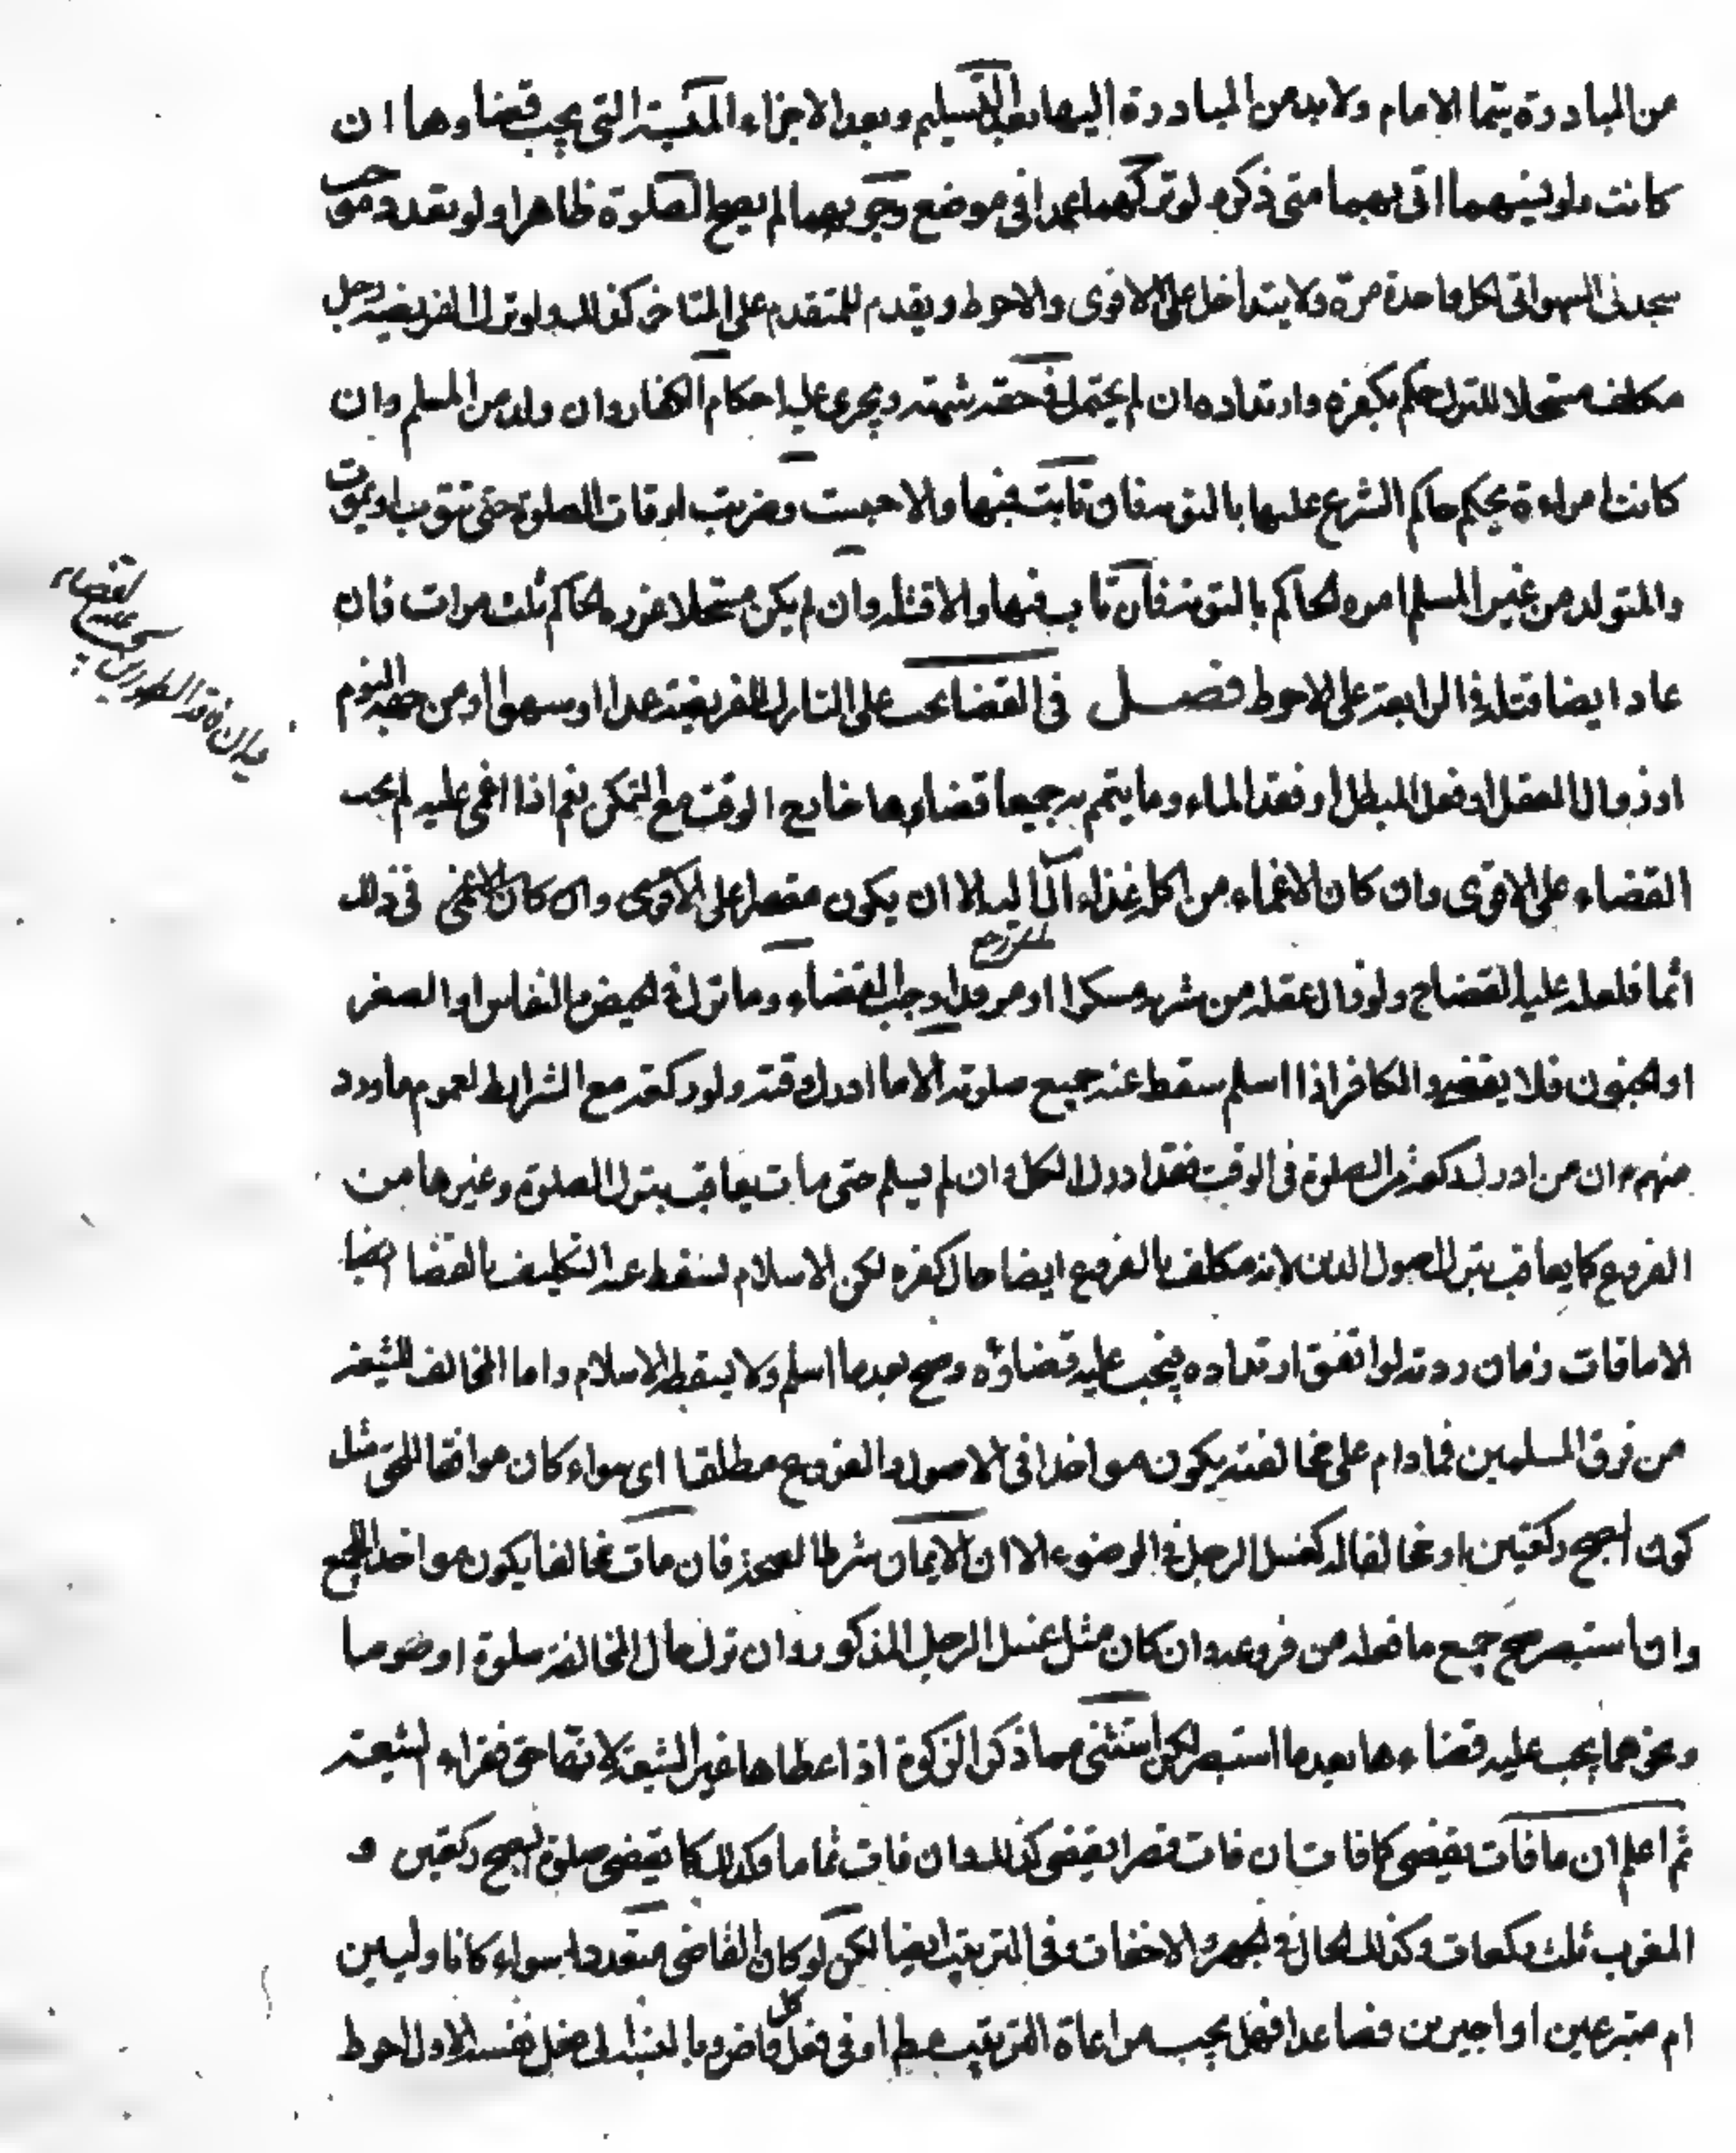 من المبادرة يتما الامام ولابد من المبادرة اليها بعد التسليم وبعد الاجزاء المنسية التى يجب قضاوها ان
كانت ولو نسيهما اتى بهما متى ذكره لو تركهما عمدا فى موضع وجوبهما لم يصح الصلوة ظاهرا ولو تعدد موجب
سجدتى السهو اتى لكل واحدة مرة ولا يتداخل على الاقوى والاحوط ويقدم المتقدم على المتاخر كذلك ولو ترك الفريضة رجل
مكلف مستحلا للترك حكم بكفره وارتداده ان لم يحتمل فى حقه شبهة ويجرى عليه احكام الكفار وان ولد من المسلم وان
كانت امراءة يحكم حاكم الشرع عليها بالتوبة فان تابت فبها والا حبست وضربت اوقات الصلوة حتى تتوب او يموت
والمتولد من غير المسلم امره الحاكم بالتوبة فان تاب فبها والا قتله وان لم يكن مستحلا عزره الحاكم ثلث مرات فان
عاد ايضا قتله فى الرابعة على الاحوط فصل فى القضا يجب على التارك للفريضة عمدا او سهوا او من جهة النوم
او زوال العقل او فعل المبطل او فقد الماء وما يتمم به جميعا قضاءها خارج الوقت مع التمكن نعم اذا اغمى عليه لم يجب
القضاء على الاقوى وان كان الاغماء من اكل غذاء الا ان يكون مقصرا على الاقوى وان كان الاغمى فى ذلك
اثما فلعله عليه القضاء ولو زال عقله من شربه مسكرا او مرقدا وجب القضاء وما ترك فى الحيض والنفاس او الصغر
او الجنون فلا يقضيه والكافر اذا اسلم سقط عنه جميع صلوته الا ما ادرك وقته ولو ركعة مع الشرايط لعموم ما ورد
منهم ان من ادرك ركعة من الصلوة فى الوقت فقد ادرك الكل وان لم يسلم حتى مات يعاقب بترك الصلوة وغيرها من
الفروع كما يعاقب بترك اصول الدين لانه مكلف بالفروع ايضا حال كفره لكن الاسلام يسقط عنه التكليف بالقضا ايضا
الا ما فات زمان ردته لو اتفق ارتداده فيجب عليه قضاؤه وصح بعد ما اسلم ولا يسقطه الاسلام واما المخالف للشيعة
من فرق المسلمين فما دام على مخالفته يكون مواخذا فى الاصول والفروع مطلقا اى سواء كان موافقا للحق مثل
كون الصبح ركعتين او مخالفا له كغسل الرجل فى الوضوء الا ان الايمان شرط الصحة فان مات مخالفا يكون مواخذا بالجميع
وان استبصر صح جميع ما فعله من فروعه وان كان مثل غسل الرجل المذكور وان ترك حال المخالفة صلوة او صوما
ونحوهما يجب عليه قضاءها بعد ما استبصر لكن استثنى مما ذكر الزكوة اذا اعطاها غير الشيعة لانها حق فقراء الشيعة
ثم اعلم ان ما فات يقضى كما فات ان فات قصرا يقضى كذلك وان فات تماما فكذلك كما يقضى صلوة الصبح ركعتين و
المغرب ثلث ركعات وكذلك الحال فى الجهر والاخفات وفى الترتيب ايضا لكن لو كان القاضى متعددا سواء كانا وليين
ام متبرعين او اجيرين فصاعدا فهل يجب مراعاة الترتيب او فى فعل كل قاض بالنسبة الى فعل نفسه الاول احوط
بل ان فاقد الطهورين يجب عليه القضاء